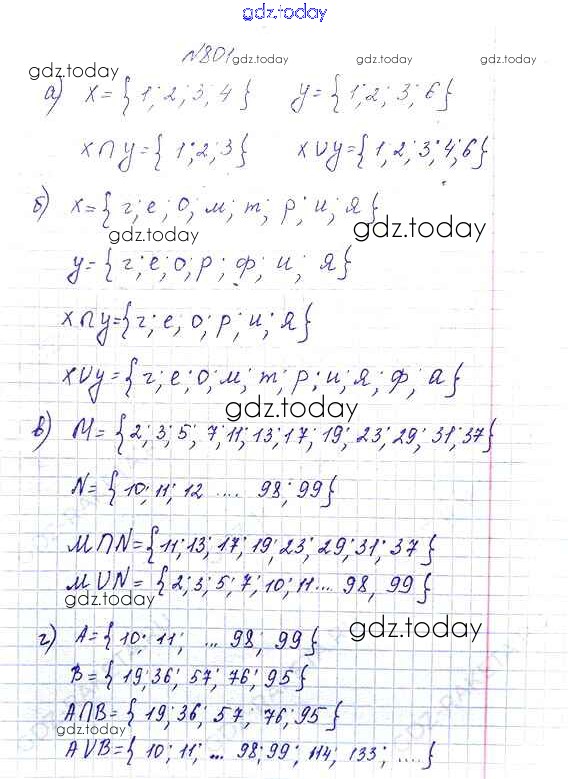 gdz.today
№801
gdz.today gdz.today
gdz.today
а) X={1;2;3;4} y={1;2;3;6}
X∩y={1;2;3} X∪y={1,2;3;4;6}
б) X={г;е;о;м;т;р;и;я}
gdz.today gdz.today
y={г;е;о;р;ф;и;я}
X∩y={г;е,о;р;и;я}
X∪y={г;е;о;м;т;р;и;я;ф;а}
gdz.today
в) M={2;3;5;7;11;13;17;19;23;29;31;37}
N={10;11;12 .... 98;99}
M∩N={11;13;17;19;23;29;31;37}
M∪N={2;3;5;7;10;11... 98,99}
gdz.today
gdz.today
г) A={10;11; ...98;99}
B={19;36;57;76;95}
A∩B={19;36;57;76;95}
gdz.today
A∪B={10;11;...98;99;114;133;....}